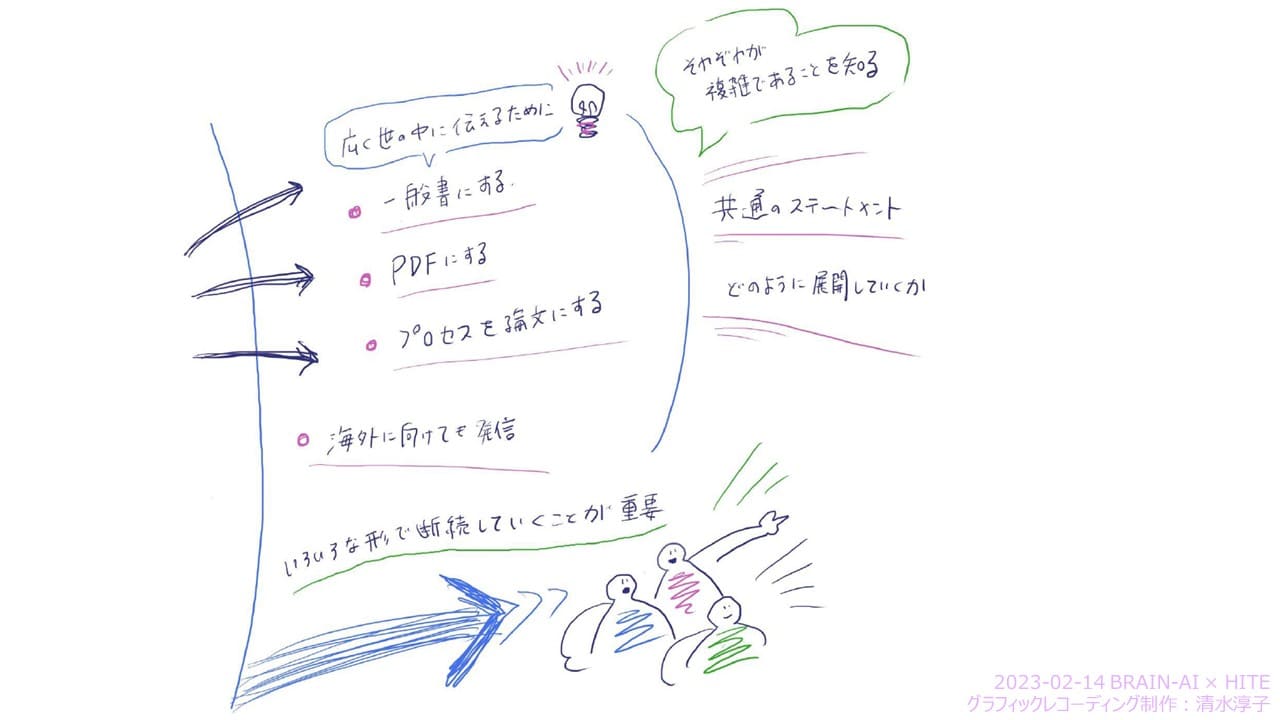 広く世の中に伝えるために
一般書にする.
PDFにする
プロセスを論文にする
海外に向けても発信
いろいろな形で断続していくことが重要
それぞれが
複雑であることを知る
共通のステートメント
どのように展開していくか
2023-02-14 BRAIN-AI × HITE
グラフィックレコーディング制作：清水淳子